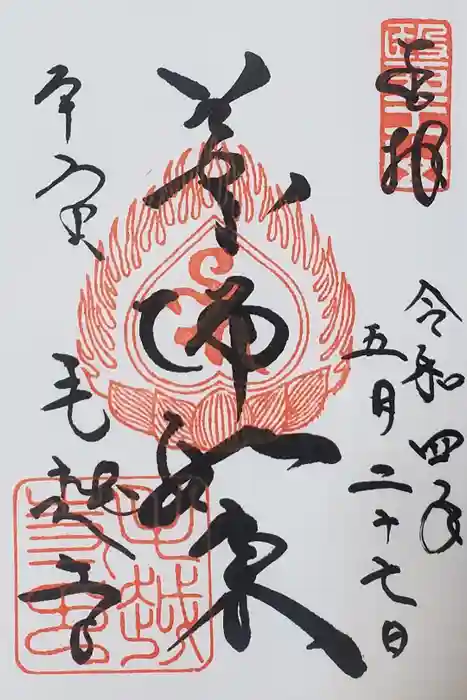 奉拝
令和四年
五月二十七日
薬師如来
毛越寺